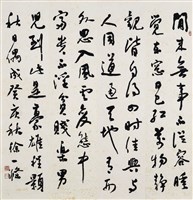 閒來無事不從容睡
覺東窗日已紅萬物靜
觀皆自得四時佳興與
人同道通天地有形
外思入風雲變態中
富貴不淫貧賤樂男
兒到此是豪雄程顥
秋日偶成癸秋徐一